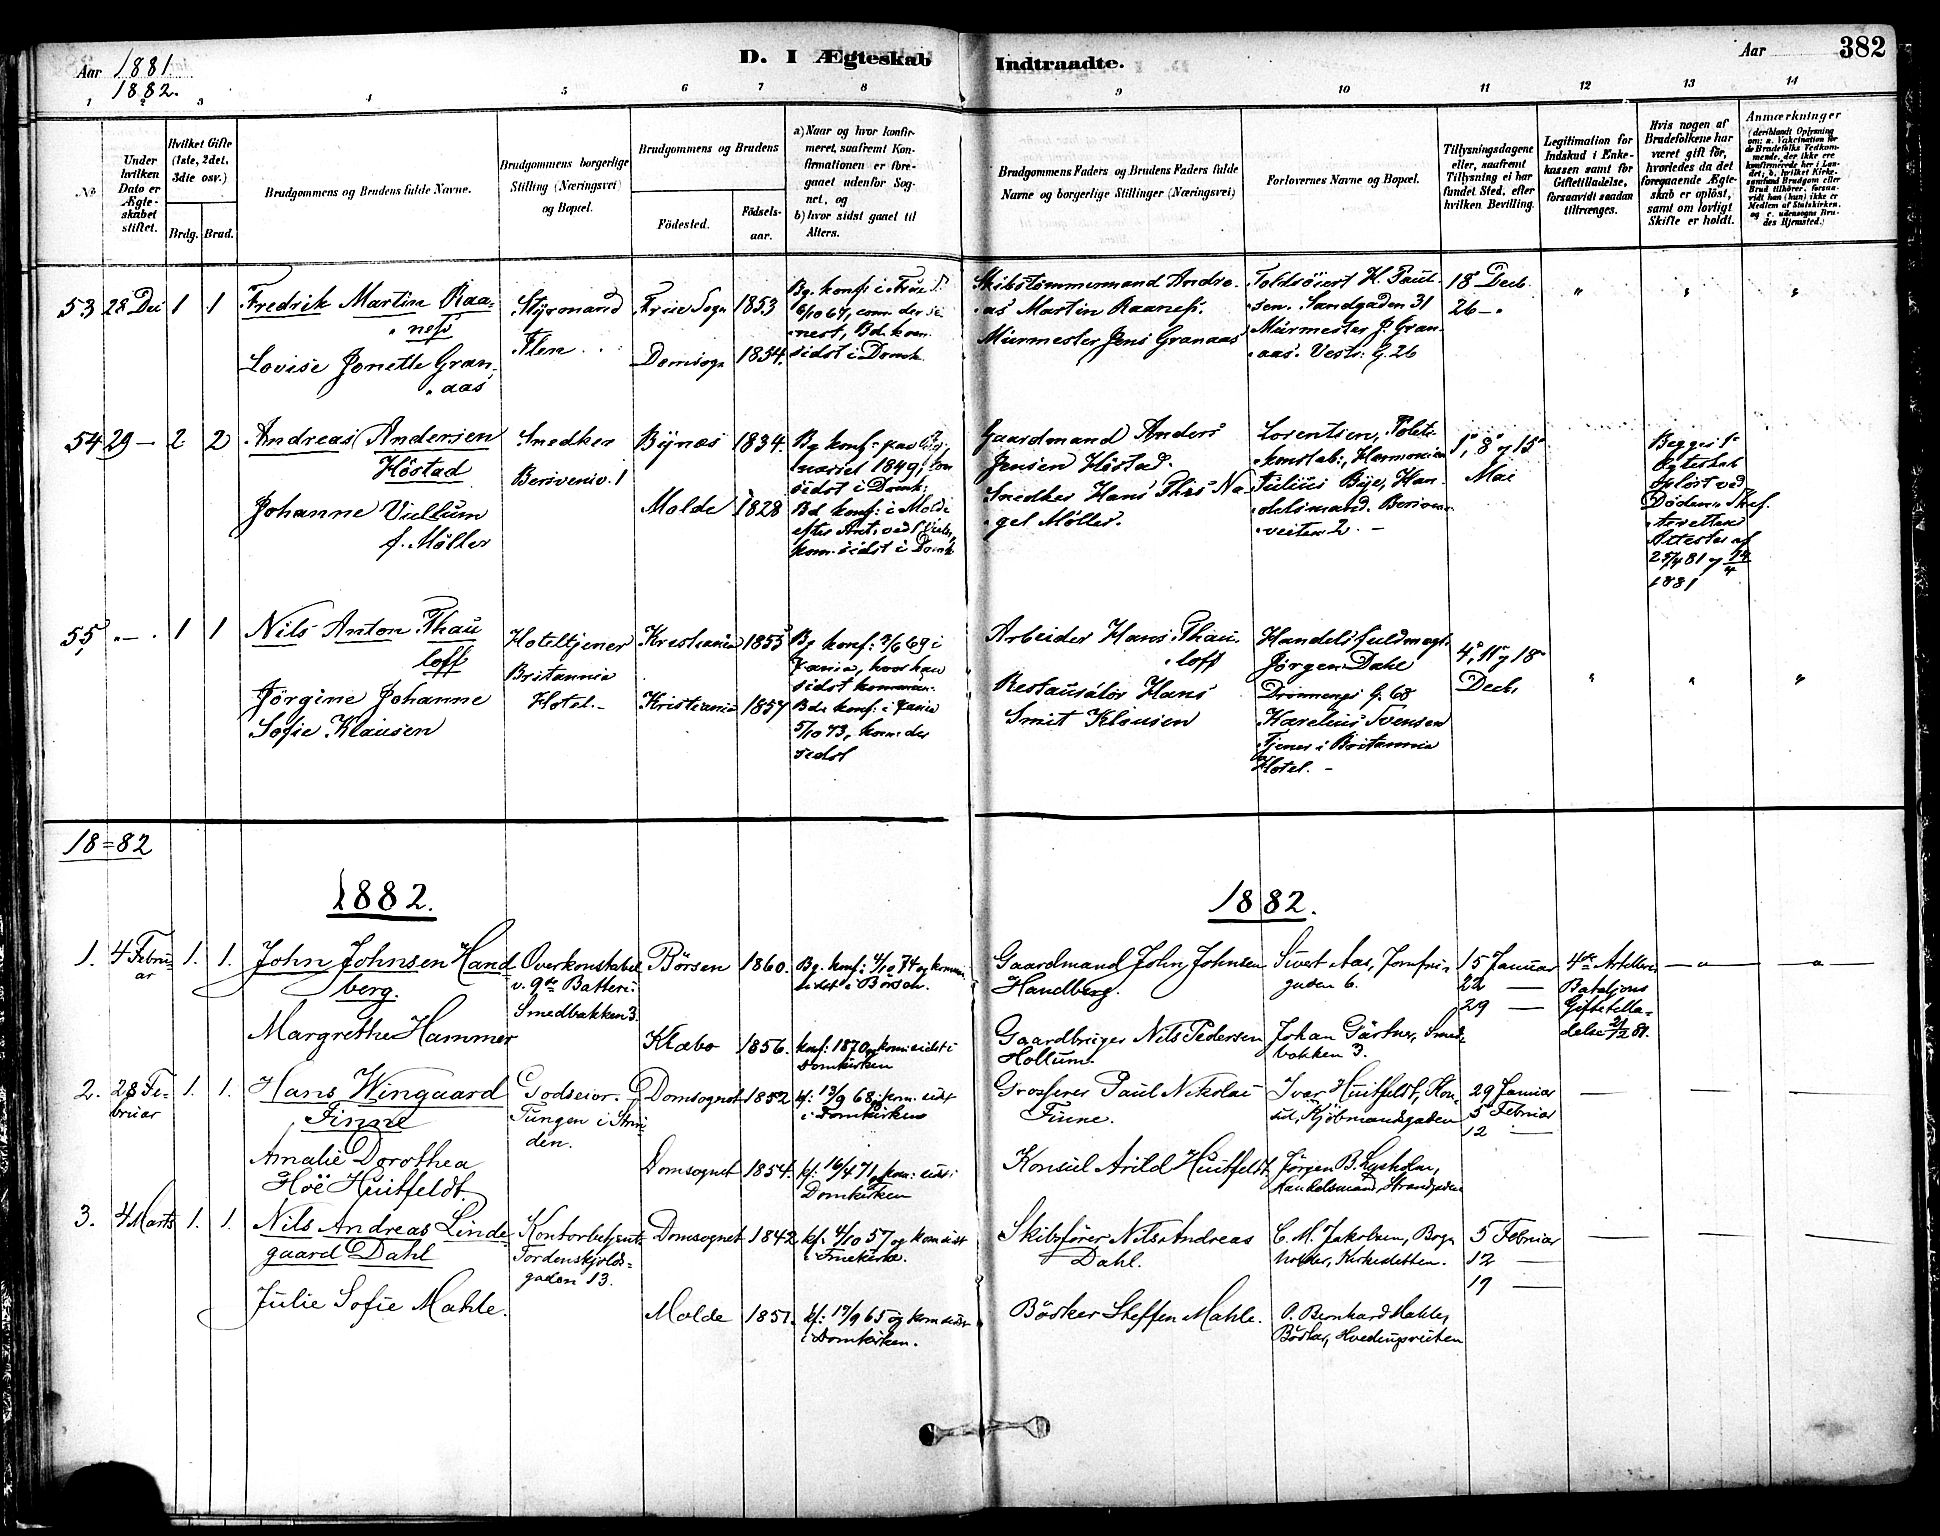 Aar 1881.
1882.
D. I Ægteskab Indtraadte.
Aar
382
1 2 3 4 5 6 7 8 9 10 11 12 13 14
No
Under hvilken Dato er Ægteskabet stiftet.
Hvilket Gifte (1ste, 2det, 3die osv.)
Brdg. Brud.
Brudgommens og Brudens fulde Navne.
Brudgommens borgerlige Stilling (Næringsvei) og Bopæl.
Brudgommens og Brudens
Födested.
Födselsaar.
a) Naar og hvor konfirmeret, saafremt Konfirmationen er foregaaet udenfor Sognet, og
b) hvor sidst gaaet til Alters.
Brudgommens Faders og Brudens Faders fulde Navne og borgerlige Stillinger (Næringsvei)
Forlovernes Navne og Bopæl.
Tillysningsdagene eller, saafremt Tillysning ei har fundet Sted, efter hvilken Bevilling.
Legitimation for Indskud i Enkekassen samt for Giftetilladelse, forsaavidt saadan tiltrænges.
Hvis nogen af Brudefolkene har været gift för, hvorledes da det foregaaende Ægteskab er oplöst, samt om lovligt Skifte er holdt.
Anmærkninger
53 28 Dec 1 1
Fredrik Martin Raaness
Lovise Jonette Granaas
Styrmand
Ilen
Frue Sogn 1853
Domsogn 1854.
Skibstømmermand Andreas Martin Raaness.
Murmester Jens Granaas
Toldsöiert H. Paulsen. Sandgaden 31
Murmester J. Granaas. Vestr: G. 26
18 Decb
26 - "
54 29 — 2 2
Andreas Andersen Höstad
Johanne Vullum
f. Möller
Snedker
Bersvenv. 1
Bynæs 1834.
Molde 1828
sidst i Domk:
Bd konf: i Molde
kom sidst i Domk
Gaardmand Anders Jensen Höstad.
Snedker Hans Thiis Nagel Möller.
Lorentsen, Politikonstab:, Harmonien
Julius Bye, Handelsmand. Bersvenveiten 2. —
1', 8' og 15'
Mai
Begges 1'
Ægteskab
oplöst ved
Döden. Skif
Attester af
25/4 81 og 14/4
1881
55, " — . 1 1
Nils Anton Thauloff
Jörgine Johanne
Sofie Klausen
Hoteltjener
Britannia
Hotel. —
Kristiania 1855
Kristiania 1857
Bg konf: 2/6 69 i
Xania, hvor han
sidst kommun:
Bd: konf: i Xania
5/10 73, kom: der
sidst
Arbeider Hans Thauloff
Restauratör Hans
Smit Klausen
Handelsfuldmægt.
Jörgen Dahl
Dronnengs G. 68
Karelius Svensen
Tjener i Britannia
Hotel. —
4', 11' og 18'
Decb,
18=82
1882.
1882.
1. 4 Februar 1. 1.
John Johnsen Handberg.
Margrethe Hammer
Overkonstabel
v. 9de Batteri
Smedbakken 3.
Börsen 1860.
Klæbo 1856.
Bg. konf: 4/10 74 og kommun:
sidst i Börsen.
konf: 1870 og kom: sidst i
Domkirken
Gaardmand John Johnsen
Handberg.
Gaardbruger Nils Pedersen
Hollum.
Sivert Aas, Jomfrugaden 6.
Johan Gärtner, Smedbakken 3.
15 Januar
22 —
29 —
4de Artilleri
Bataljons
Giftetilladelse 21/12 81.
2. 28 Februar 1. 1.
Hans Wingaard
Finne
Amalie Dorothea
Höe Huitfeldt.
Godseier
Tungen i Strinden.
Domsognet 1852
Domsognet 1854.
kf: 13/9 68, kom: sidst
i Domkirken
kf: 16/4 71, kom: sidst i
Domkirken
Grosserer Paul Nikolai
Finne.
Konsul Arild Huitfeldt
Ivar Huitfeldt, Konsul, Kjöbmandsgaden
Jörgen B. Lysholm,
Handelsmand, Strandgaden
29 Januar
5 Februar
12 —
3. 4 Marts 1. 1.
Nils Andreas Lindegaard Dahl
Julie Sofie Mahle.
Kontorbetjent
Tordenskjoldsgaden 13.
Domsognet 1842
Molde 1851.
kf: 4/10 57 og kom sidst
i Fruekirke.
kf: 17/9 65 og kom sidst
i Domkirken.
Skibsförer Nils Andreas
Dahl.
Bösker Steffen Mahle.
C. M. Jakobsen, Bogholder, Kirkesletten.
P. Bernhard Mahle,
Bösker, Hvedingsveiten
5 Februar
12 —
19 —